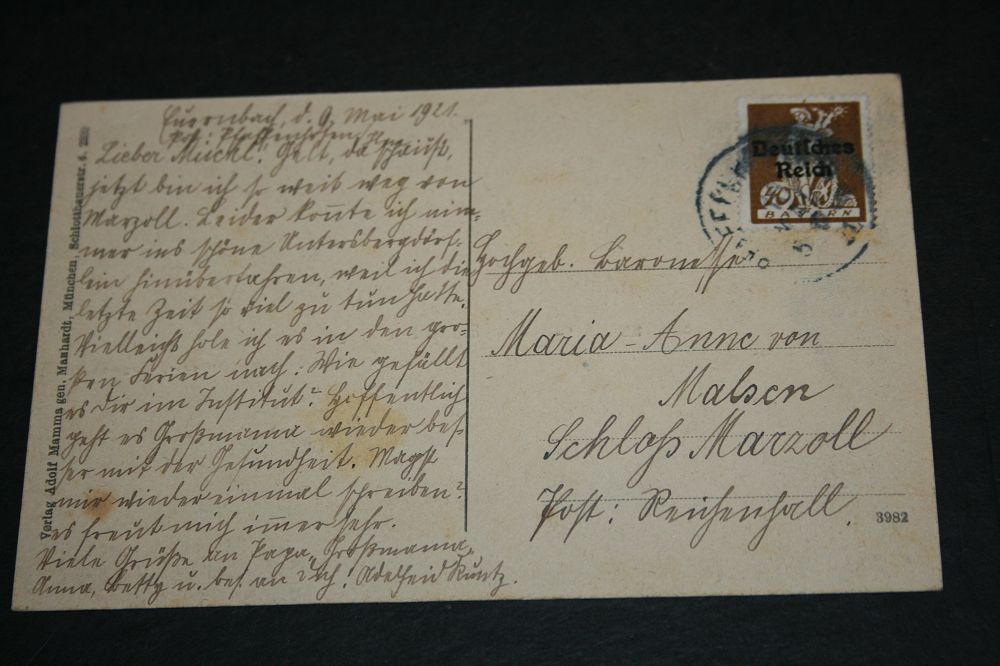 Euernbach, d. 9. Mai 1921.
Post: Pfaffenhofen
Lieber Muckl! Gelt, da schaust,
jetzt bin ich so weit weg von
Marzoll. Leider konnte ich nim-
mer ins schöne Untersbergdörf-
lein hinüberfahren, weil ich die
letzte Zeit so viel zu tun hatte.
Vielleicht hole ich es in den gro-
ßen Ferien nach. Wie gefällt
es Dir im Institut? Hoffentlich
geht es Großmama wieder bes-
ser mit der Gesundheit. Magst
mir wieder einmal schreiben?
es freut mich immer sehr.
Viele Grüße an Papa, Großmama,
Anna, Betty u. bes. an Dich! Adelheid Kuntz.
Verlag Adolf Mamma gen. Manhardt, München, Schlotthauerstr. 4.
Deutsches
Reich
40
BAYERN
Hochgeb. Baronesse
Maria-Anne von
Malsen
Schloß Marzoll
Post: Reichenhall.
3982